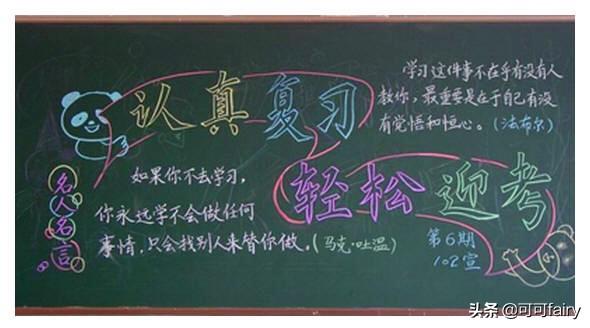 认真复习
学习这件事不在乎有没有人
教你，最重要是在于自己有没
有觉悟和恒心。（法布尔）
轻松迎考
名人名言
如果你不去学习，
你永远学不会做任何
事情，只会找别人来替你做。（马克·吐温）
第6期
102宣
头条 @可可fairy